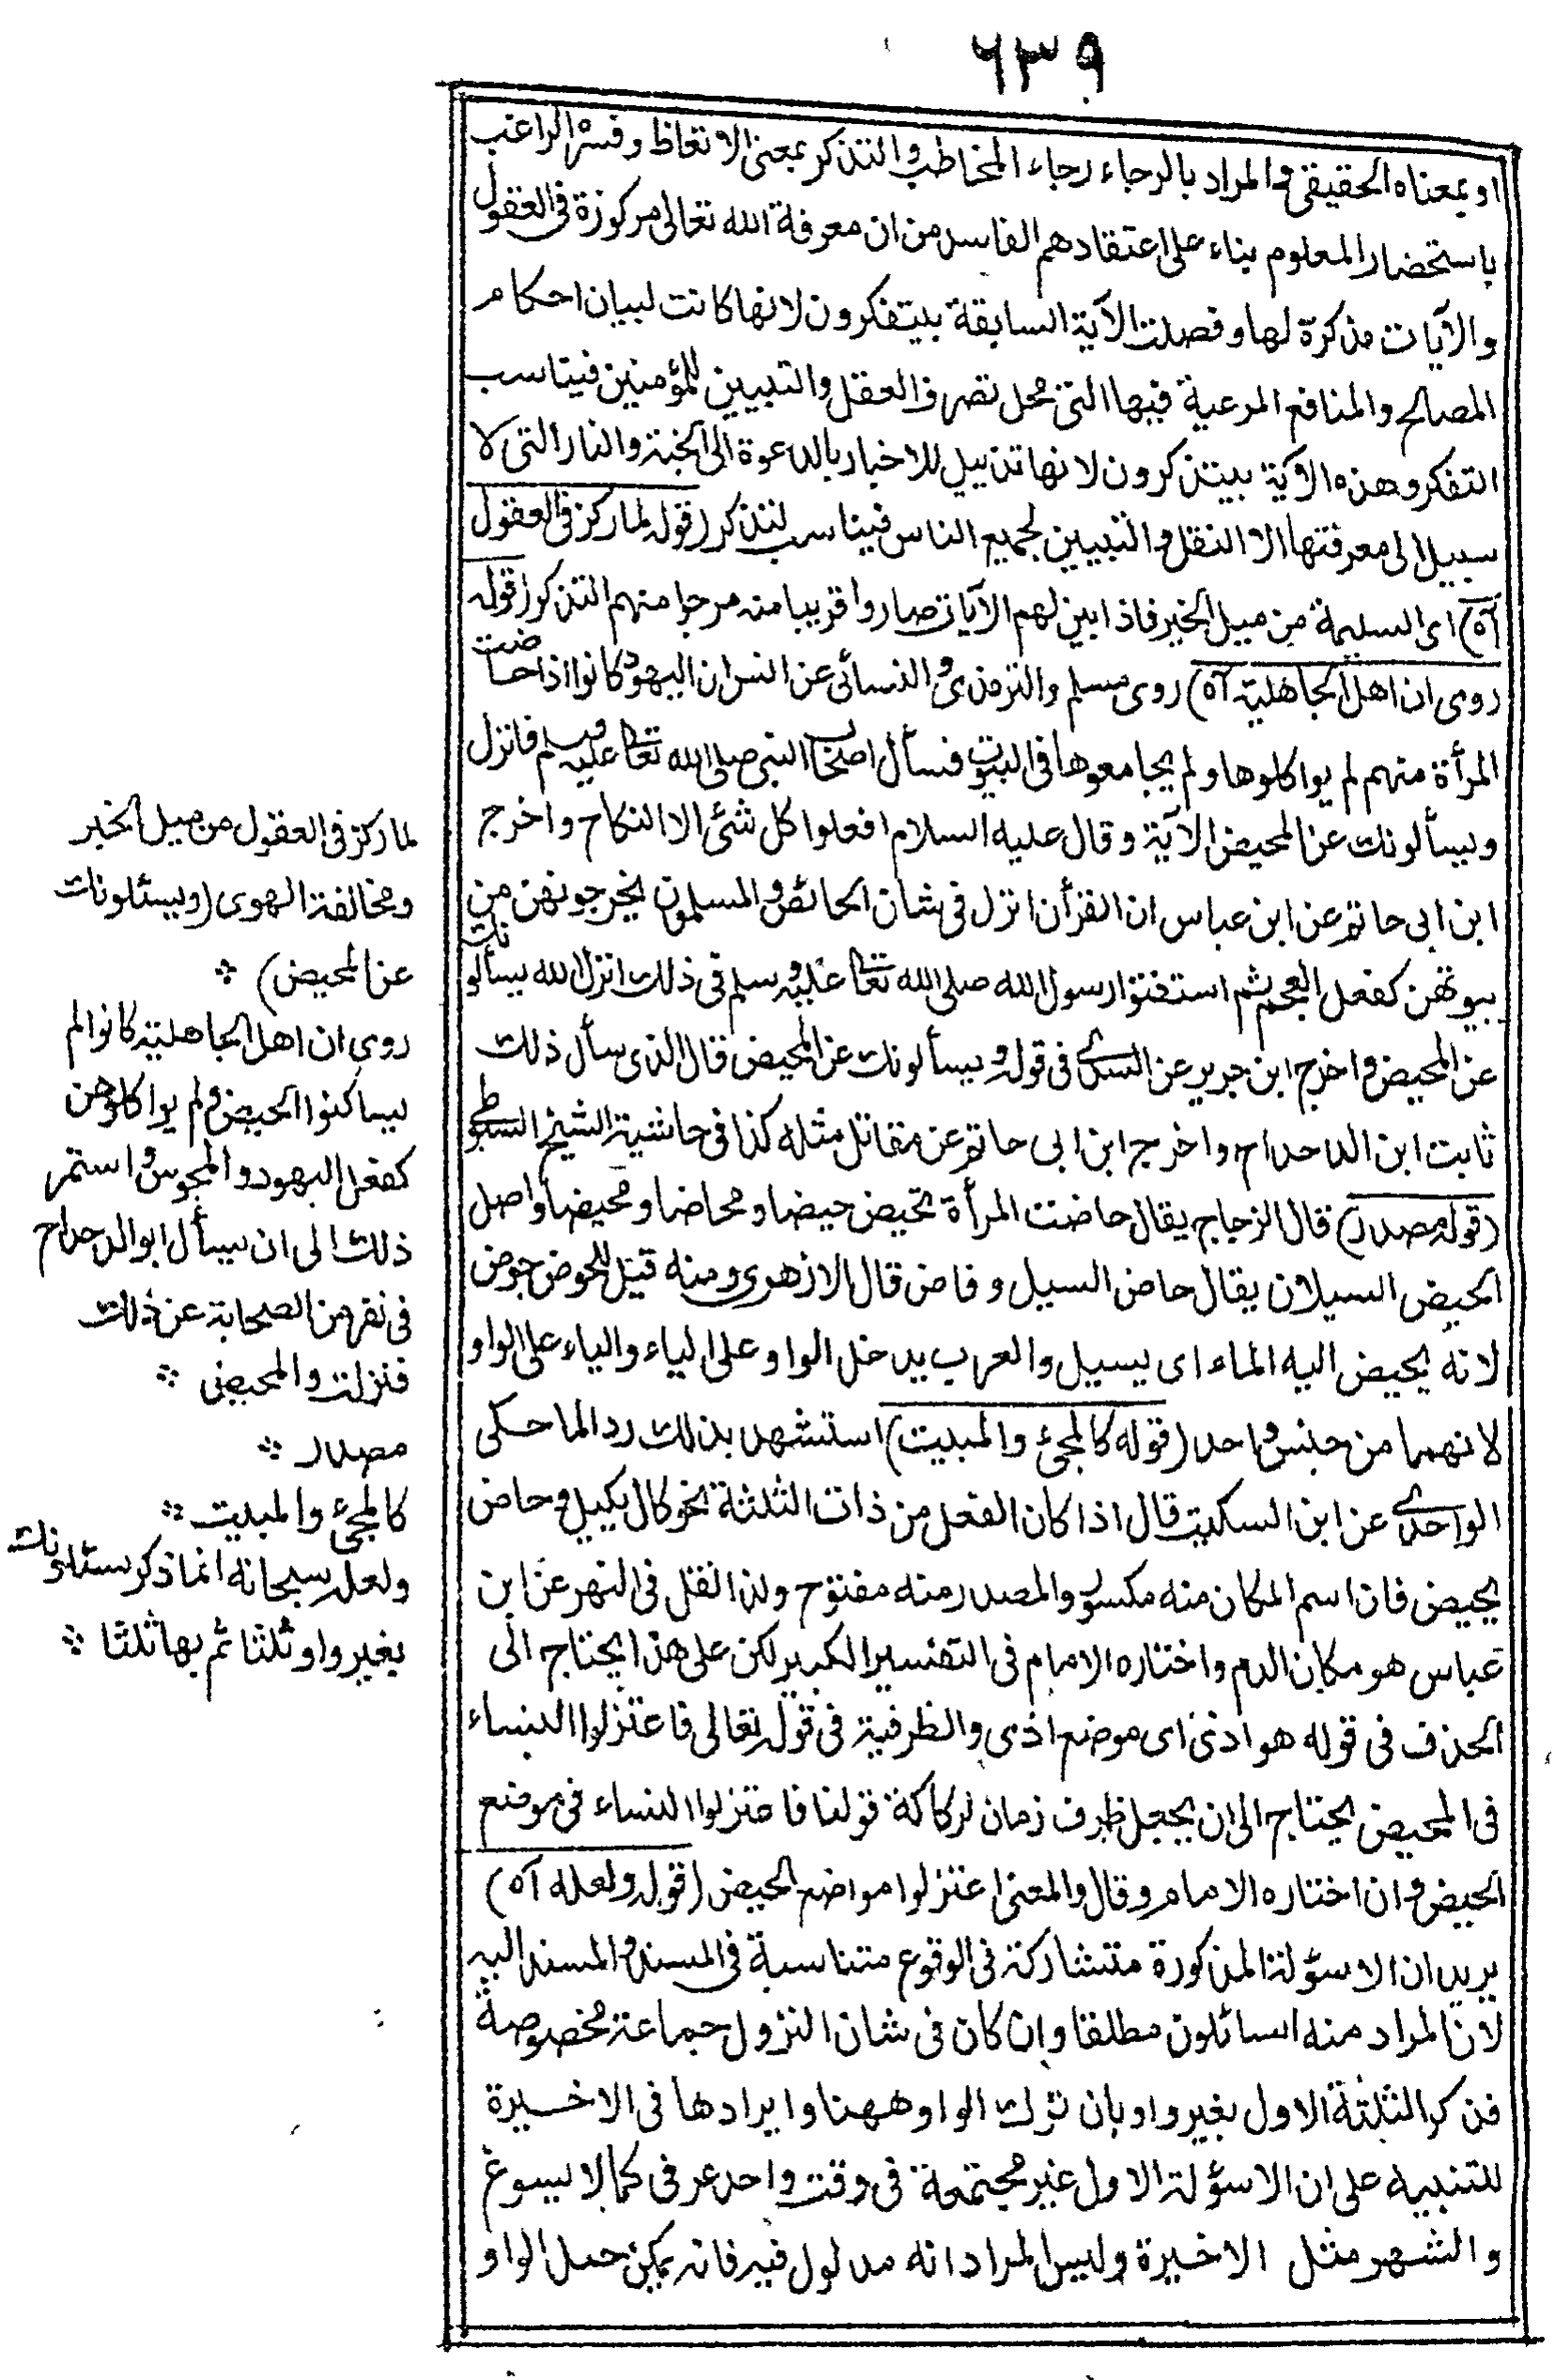 ٦٣٩
او بمعناه الحقيقي والمراد بالرجاء رجاء المخاطب والتذكر بمعنى الاتعاظ وفسره الراغب
باستحضار المعلوم بناء على اعتقادهم الفاسد من ان معرفة الله تعالى مركوزة في العقول
والآيات مذكرة لها وفصلت الآية السابقة بيتفكرون لانها كانت لبيان احكام
المصالح والمنافع المرعية فيها التي محل تصرف العقل والتبيين للمؤمنين فيناسب
التفكر وهذه الآية بيتذكرون لانها تذييل للاخبار بالدعوة الى الجنة والنار التي لا
سبيل الى معرفتها الا النقل والتبيين لجميع الناس فيناسب لتذكر (قوله لما ركز في العقول
آه) اى السليمة من ميل الخير فاذا بين لهم الآيات صاروا قريبا منه مرجوا منهم التذكر (قوله
روى ان اهل الجاهلية آه) روى مسلم والترمذى والنسائى عن انس ان اليهود كانوا اذا حاضت
المرأة منهم لم يواكلوها ولم يجامعوها في البيوت فسأل اصحاب النبى صلى الله تعالى عليه وسلم فانزل
ويسألونك عن المحيض الآية وقال عليه السلام افعلوا كل شئ الا النكاح واخرج
ابن ابى حاتم عن ابن عباس ان القرأن انزل في شان الحائض والمسلمون يخرجونهن من
بيوتهن كفعل العجم ثم استفتوا رسول الله صلى الله تعالى عليه وسلم في ذلك انزل الله يسألونك
عن المحيض واخرج ابن جرير عن السدى في قوله ويسألونك عن المحيض قال الذى سأل ذلك
ثابت ابن الدحداح واخرج ابن ابى حاتم عن مقاتل مثله كذا في حاشية الشيخ السيوطى
(قوله مصدر) قال الزجاج يقال حاضت المرأة تحيض حيضا ومحاضا ومحيضا واصل
الحيض السيلان يقال حاض السيل وفاض قال الازهرى ومنه قيل للحوض حوض
لانه يحيض اليه الماء اى يسيل والعرب يدخل الواو على الياء والياء على الواو
لانهما من جنس واحد (قوله كالمجئ والمبيت) استشهد بذلك ردا لما حكى
الواحدى عن ابن السكيت قال اذا كان الفعل من ذات الثلثة نحو كال يكيل وحاض
يحيض فان اسم المكان منه مكسور والمصدر منه مفتوح ولذا نقل في النهر عن ابن
عباس هو مكان الدم واختاره الامام في التفسير الكبير لكن على هذا يحتاج الى
الحذف في قوله هو اذى اى موضع اذى والظرفية في قوله تعالى فاعتزلوا النساء
في المحيض يحتاج الى ان يجعل ظرف زمان لركاكة قولنا فاعتزلوا النساء في موضع
الحيض وان اختاره الامام وقال والمعنى اعتزلوا مواضع الحيض (قوله ولعله آه)
يريد ان الاسؤلة المذكورة متشاركة في الوقوع متناسبة في المسند والمسند اليه
لان المراد منه السائلون مطلقا وان كان في شان النزول جماعة مخصوصة
فذكر الثلثة الاول بغير واو بان ترك الواو ههنا وايرادها في الاخيرة
للتنبيه على ان الاسؤلة الاول غير مجتمعة في وقت واحد عرفى كما لا يسوغ
والشهر مثل الاخيرة وليس المراد انه مدلول فيه فانه يمكن حمل الواو
لما ركز في العقول من ميل الخير
ومخالفة الهوى (ويسئلونك
عن المحيض) ؞
روى ان اهل الجاهلية كانوا لم
يساكنوا الحيض ولم يواكلوهن
كفعل اليهود والمجوس واستمر
ذلك الى ان سأل ابو الدحداح
في نفر من الصحابة عن ذلك
فنزلت والمحيض ؞
مصدر ؞
كالمجئ والمبيت ؞
ولعله سبحانه انما ذكر يسئلونك
بغير واو ثلثا ثم بها ثلثا ؞